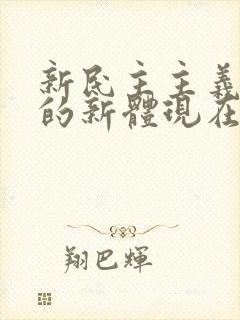 新民主主義
的新體現在
翔巴輝